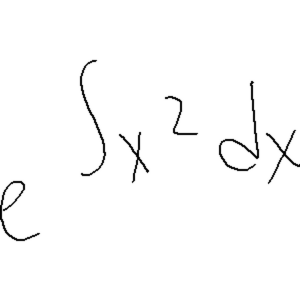 e^{∫x^2 dx}